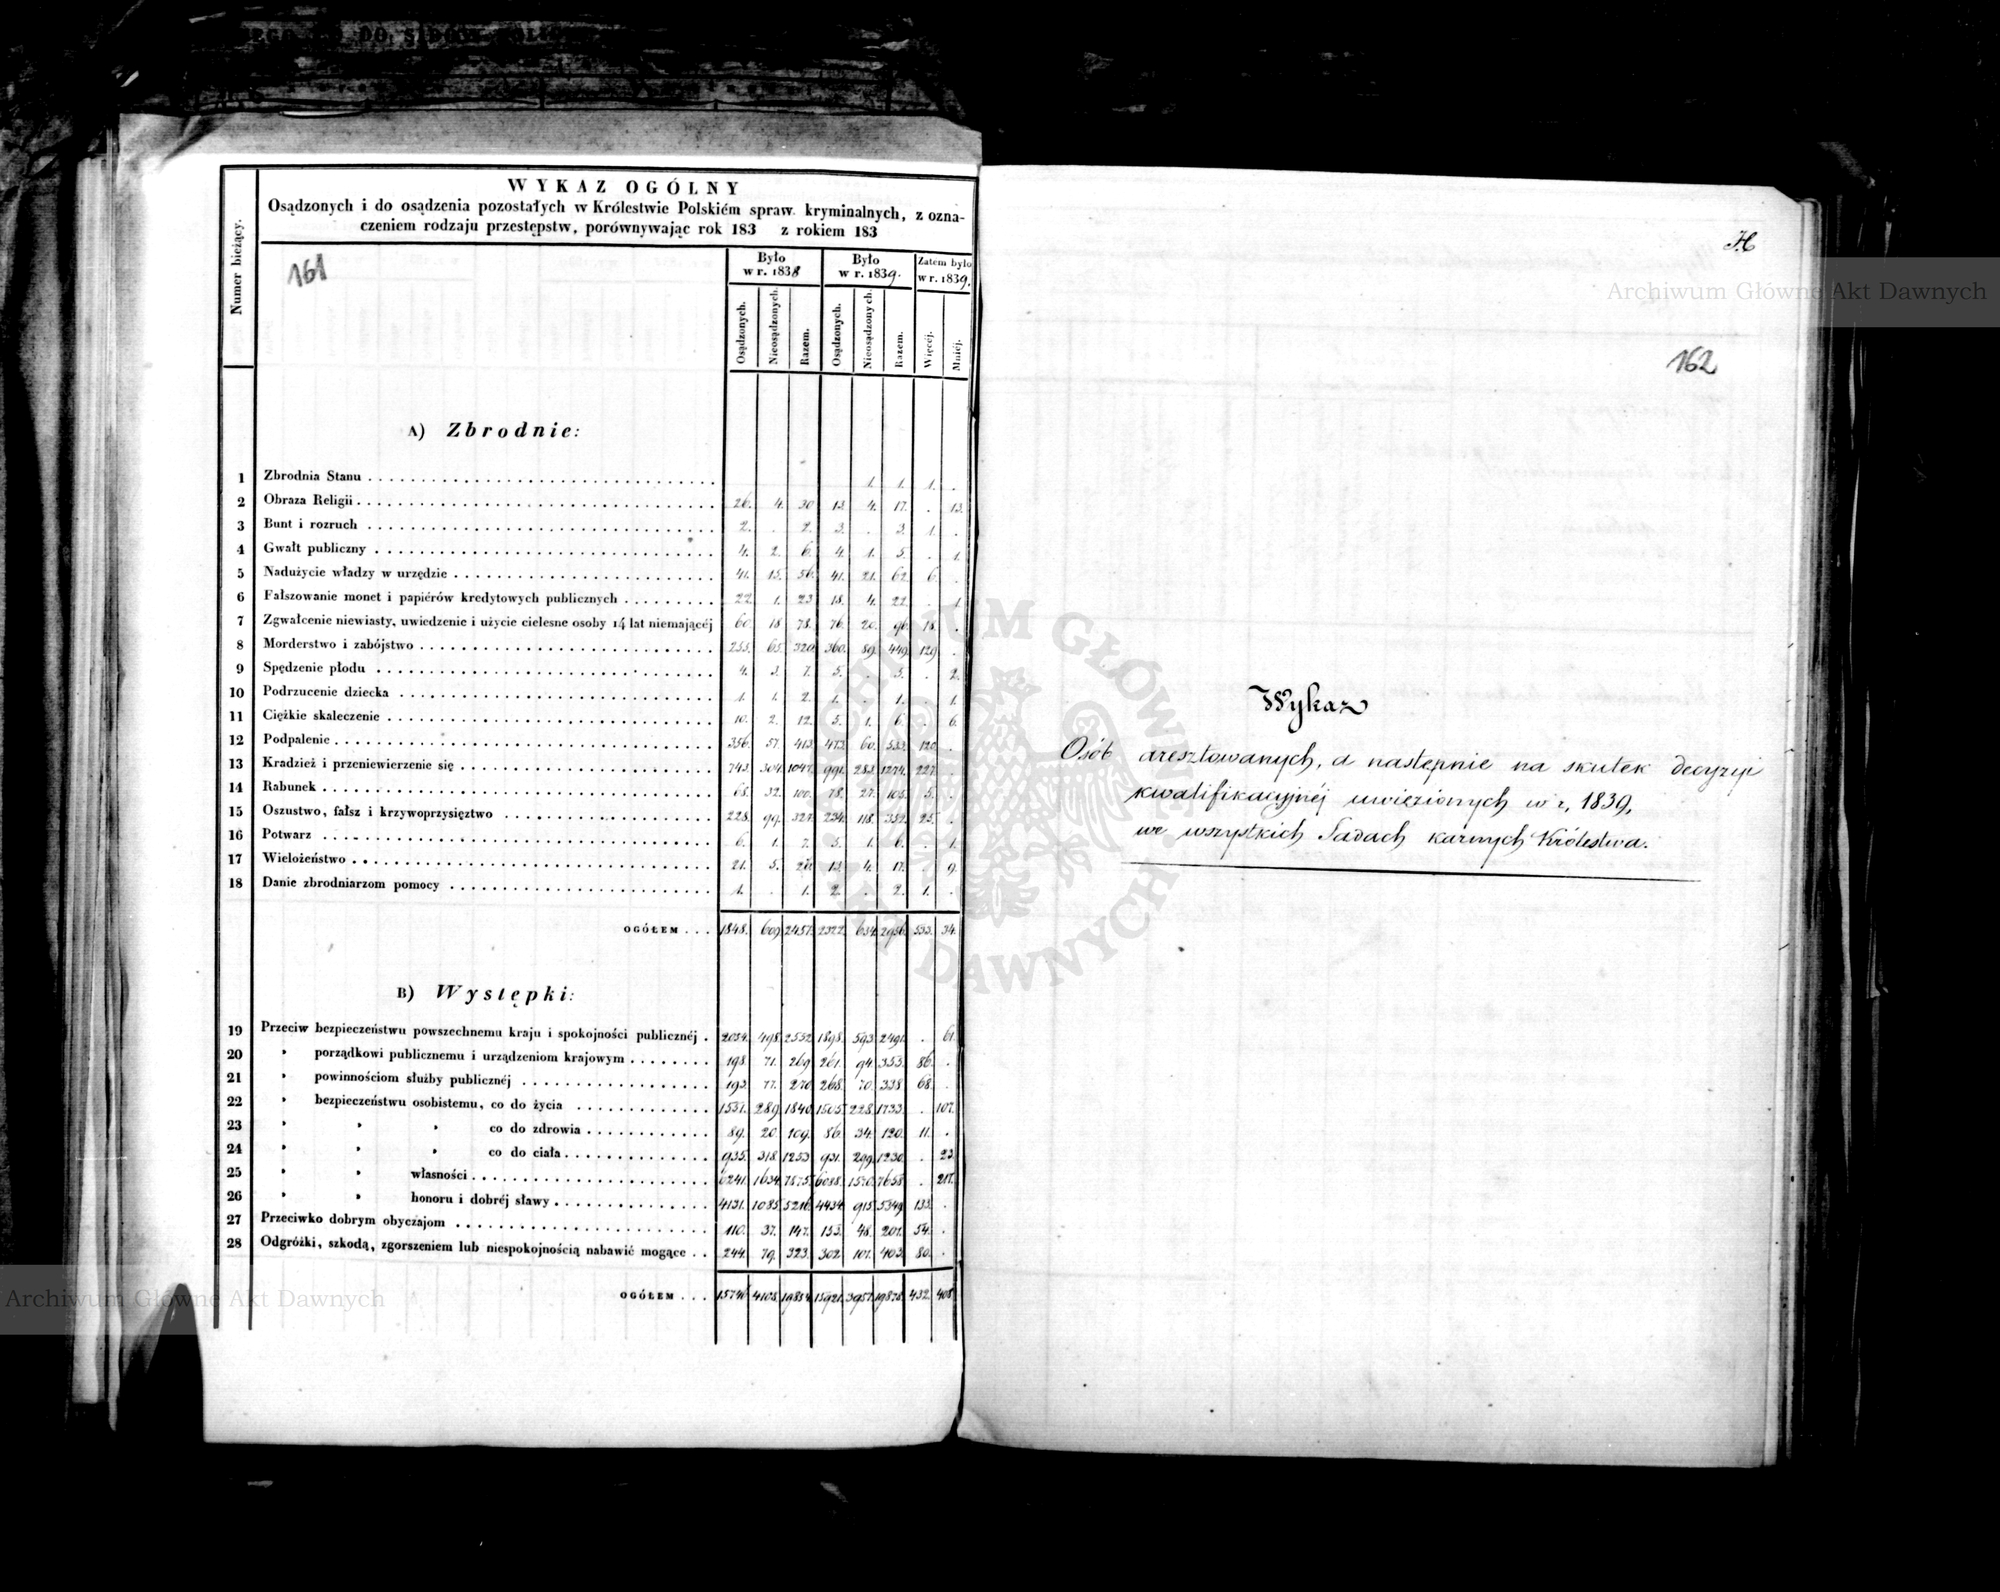 WYKAZ OGÓLNY
Osądzonych i do osądzenia pozostałych w Królestwie Polskiém spraw kryminalnych, z ozna-
czeniem rodzaju przestępstw, porównywając rok 183 z rokiem 183
Numer bieżący.
161
Było w r. 1838 Było w r. 1839. Zatem było w r. 1839.
Osądzonych. Nieosądzonych. Razem. Osądzonych. Nieosądzonych. Razem. Więcéj. Mniéj.
A) Zbrodnie:
1 Zbrodnia Stanu 1. 1. 1. .
2 Obraza Religii 26. 4. 30 13 4. 17. . 13.
3 Bunt i rozruch 2. . 2. 3. . 3. 1. .
4 Gwałt publiczny 4. 2. 6. 4. 1. 5. . 1.
5 Nadużycie władzy w urzędzie 41. 15. 56. 41. 21. 62. 6. .
6 Fałszowanie monet i papiérów kredytowych publicznych 22. 1. 23 18. 4. 22. . 1.
7 Zgwałcenie niewiasty, uwiedzenie i użycie cielesne osoby 14 lat niemającéj 60. 18 78. 76. 20. 96. 18. .
8 Morderstwo i zabójstwo 255. 65. 320 360. 89. 449. 129 .
9 Spędzenie płodu 4. 3. 7. 5. . 5. . 2.
10 Podrzucenie dziecka 1. 1. 2. 1. . 1. . 1.
11 Ciężkie skaleczenie 10. 2. 12. 5. 1. 6. . 6.
12 Podpalenie 356. 57. 413. 473. 60. 533. 120. .
13 Kradzież i przeniewierzenie się 743. 304. 1047. 991. 283. 1274. 227. .
14 Rabunek 68. 32. 100. 78. 27. 105. 5. .
15 Oszustwo, fałsz i krzywoprzysięztwo 228. 99. 327. 234. 118. 352. 25. .
16 Potwarz 6. 1. 7. 5. 1. 6. . 1.
17 Wielożeństwo 21. 5. 26. 13. 4. 17. . 9.
18 Danie zbrodniarzom pomocy 1. . 1. 2. . 2. 1. .
OGÓŁEM 1848. 609. 2457. 2322. 634. 2956. 533. 34.
B) Występki:
19 Przeciw bezpieczeństwu powszechnemu kraju i spokojności publicznéj 2054. 498. 2552. 1898. 593. 2491. . 61.
20 " porządkowi publicznemu i urządzeniom krajowym 198. 71. 269 261. 94. 355. 86. .
21 " powinnościom służby publicznéj 193. 77. 270 268. 70. 338 68. .
22 " bezpieczeństwu osobistemu, co do życia 1551. 289. 1840. 1505. 228. 1733. . 107.
23 " " " co do zdrowia 89. 20. 109. 86. 34. 120. 11. .
24 " " " co do ciała 935. 318. 1253 931. 299. 1230. . 23
25 " " własności 6241. 1634. 7875. 6088. 1570. 7658. . 217.
26 " " honoru i dobréj sławy 4131. 1085. 5216. 4434. 915. 5349. 133. .
27 Przeciwko dobrym obyczajom 110. 37. 147. 153. 48. 201. 54. .
28 Odgróżki, szkodą, zgorszeniem lub niespokojnością nabawić mogące 244. 79. 323. 302. 101. 403. 80. .
OGÓŁEM 15746. 4108. 19854. 15921. 3957. 19878. 432. 408.
H
162
Wykaz
Osób aresztowanych, a następnie na skutek decyzyi
kwalifikacyjnéj uwięzionych w r, 1839,
we wszystkich Sądach karnych Królestwa.
Archiwum Główne Akt Dawnych
Archiwum Główne Akt Dawnych
ARCHIWUM GŁÓWNE AKT DAWNYCH